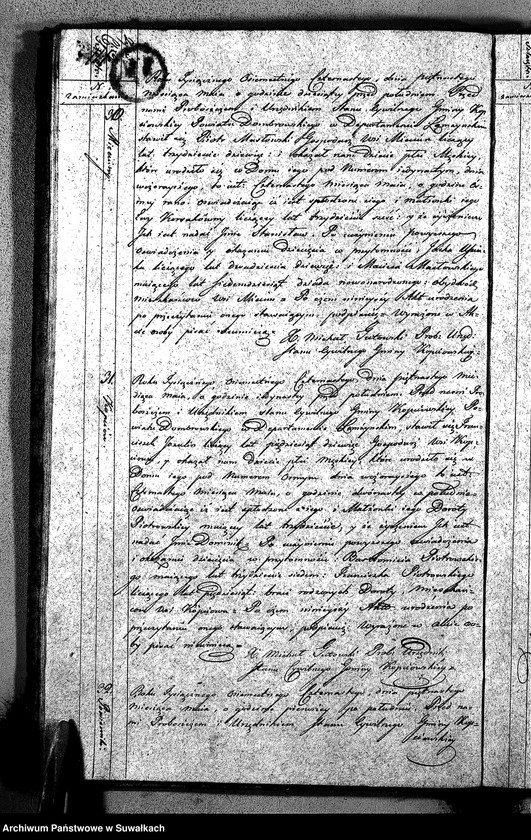 Roku Tysiącznego Osiemsetnego Czternastego, dnia piętnastego
miesiąca Maia o godzinie dziewiątej przed południem. Przed
nami Proboszczem i Urzędnikiem Stanu Cywilnego Gminy Kop-
ciowskiey Powiatu Dombrowskiego w Departamencie Łomżyńskim
stawił się Piotr Masłowski Gospodarz Wsi liczący
lat trzydzieście dziewięć; i okazał nam Dziecie płci Męskiey,
które urodziło się w Domu iego pod Numerem iedynastym, dnia
wczorayszego, to iest Czternastego miesiąca Maia, o godzinie
rano: oswiadczaiąc iż iest spłodzone z iego i małżonki iego
Ewy liczącey lat trzydzieście sześć; y że życzeniem
Jak iest nadać Jmie Stanisław. Po uczynieniu powyższego
oswiadczenia y okazaniu dziecięcia w przytomności
liczącego lat dwadzieścia dziewięć i Macieia Masłowskiego
maiącego lat siedemdziesiąt dziada nowonarodzonego; obydwóch
mieszkańców Wsi Po czem ninieyszy Akt urodzenia
po przeczytaniu onego stawaiącym, podpisany. Wyrażone w Ak-
cie osoby pisać nieumieią
X. Michał Gutowski Prob: Urzęd:
Stanu Cywilnego Gminy Kopciowskiey
31. Kopciowo
Roku Tysiącznego, Osiemsetnego Czternastego, dnia piętnastego Mie-
siąca Maia, o godzinie przed południem. Przed nami Pro-
boszczem i Urzędnikiem Stanu Cywilnego Gminy Kopciowskiey Po-
wiatu Dombrowskiego w Departamencie Łomżyńskim, stawił się Fran-
ciszek liczący lat pięćdziesiąt dziewięć, Gospodarz Wsi Kop-
ciowa, y okazał nam dziecie płci Męskiey, które urodziło się w
Domu iego pod Numerem Osmym, dnia wczorayszego to iest
Czternastego Miesiąca Maia, o godzinie dwunastey w południe
oswiadczaiąc iż iest spłodzone z iego i Małżonki iego Doroty
Piotrowskiey maiącey lat trzydzieście, y że życzeniem Jak iest
nadać Jmie Dominik. Po uczynieniu powyższego oswiadczenia
i okazaniu dziecięcia w przytomności Bartłomieia Piotrowskie-
go maiącego lat trzydzieście siedem; Franciszka Piotrowskiego
liczącego lat pięćdziesiąt; braci rodzonych Doroty, mieszkań-
ców Wsi Kopciowa. Po czem ninieyszy Akt urodzenia po
przeczytaniu onego stawaiącym, podpisany. Wyrażone w Akcie oso-
by pisać nieumieią
X. Michał Gutowski Prob: Urzędnik
Stanu Cywilnego Gminy Kopciowskiey
32.
Roku Tysiącznego Osiemsetnego Czternastego, dnia piętnastego
miesiąca Maia, o godzinie pierwszey po południu. Przed na-
mi Proboszczem i Urzędnikiem Stanu Cywilnego Gminy Kop-
ciowskiey
Archiwum Państwowe w Suwałkach